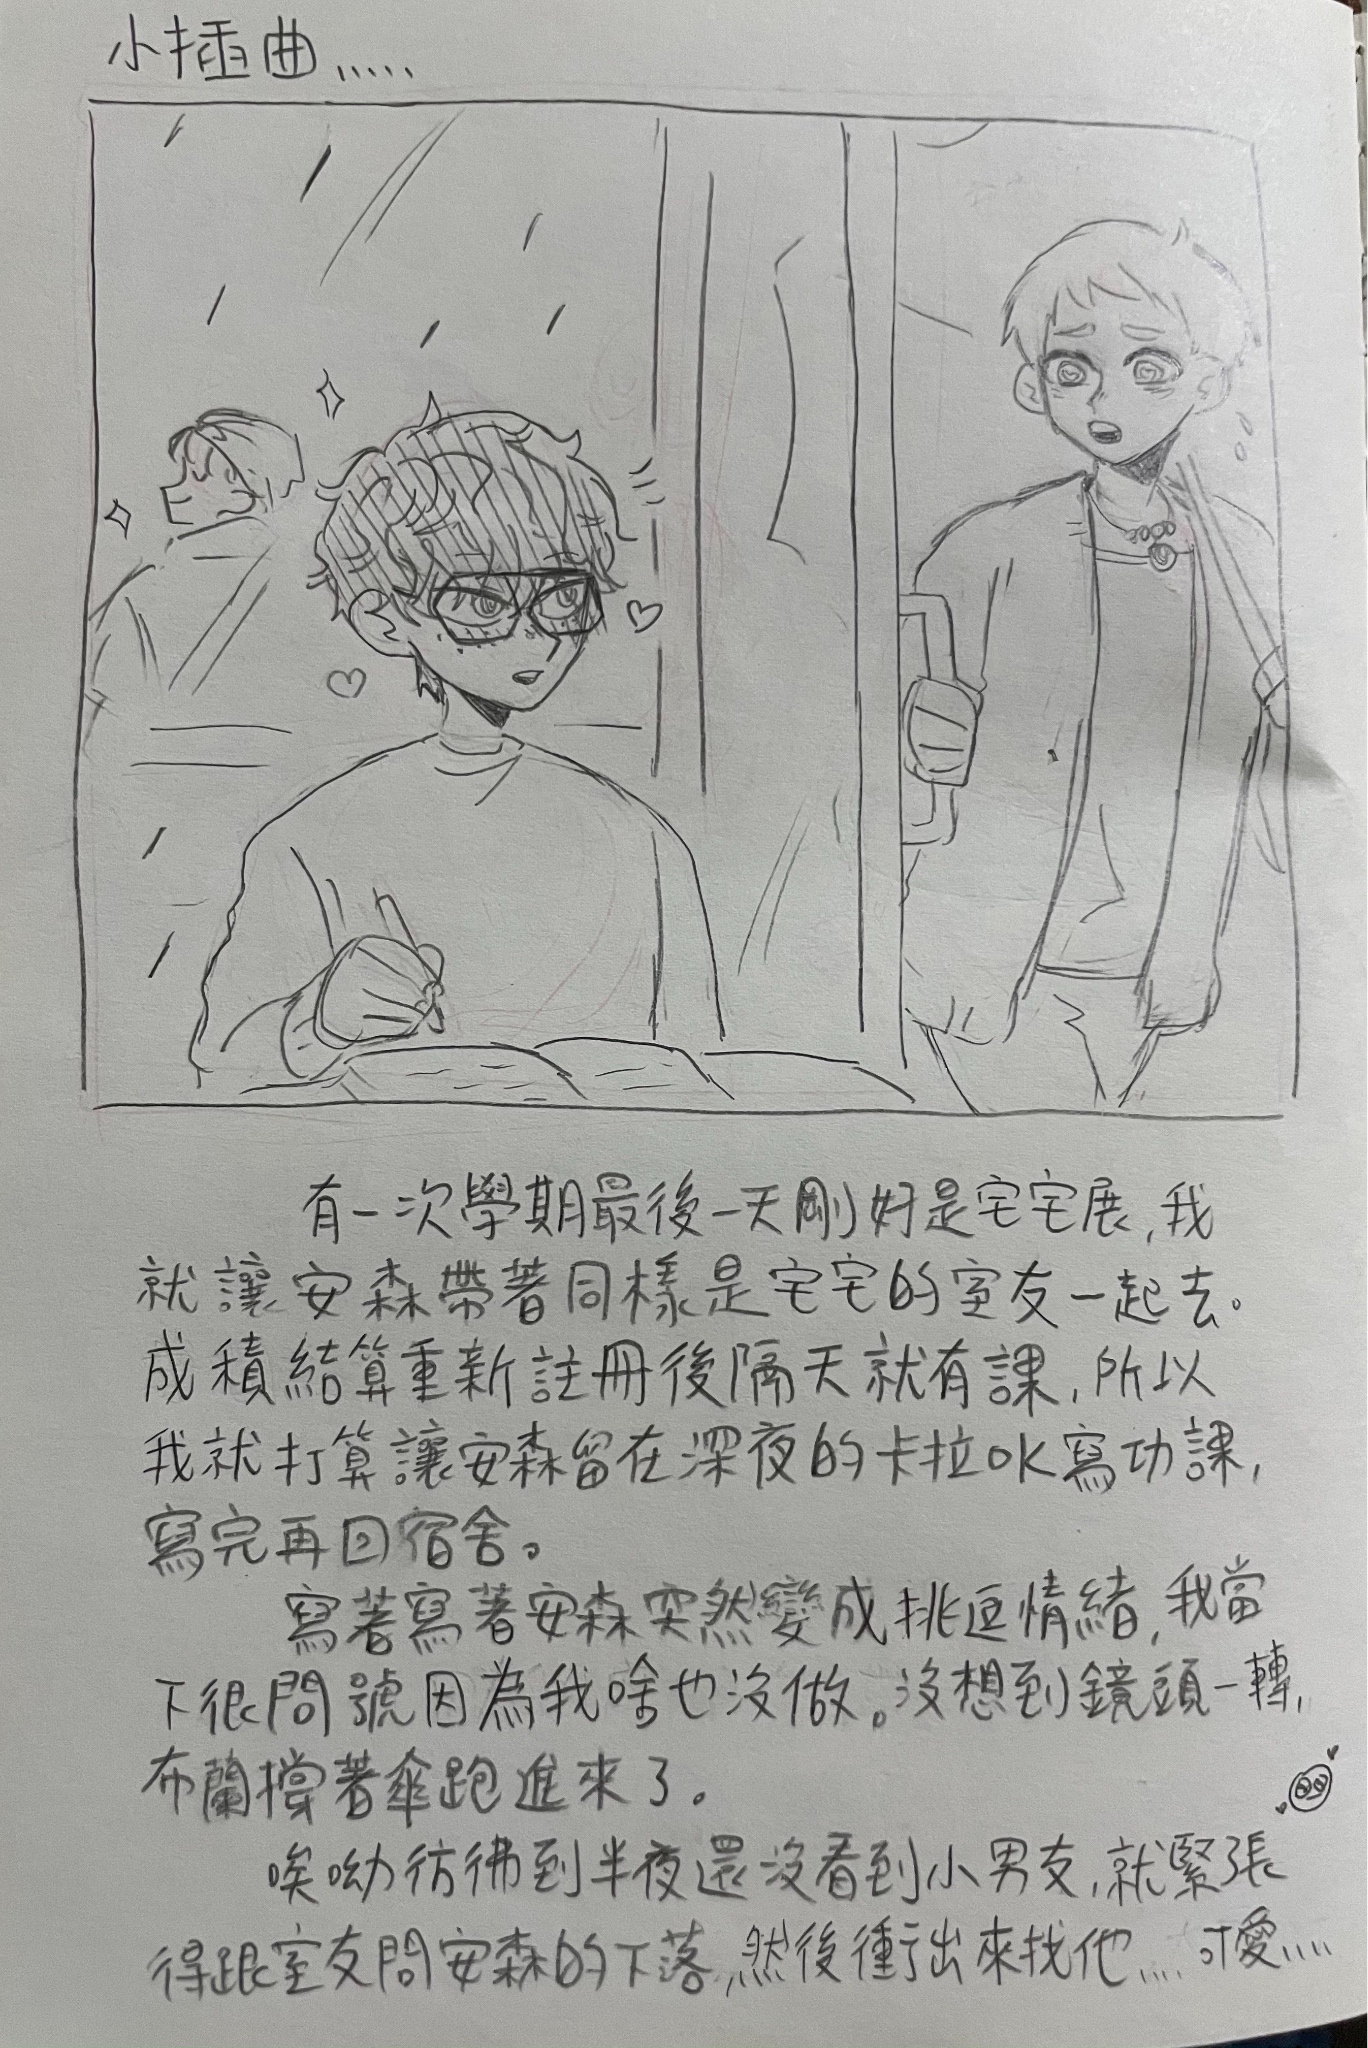 小插曲.....
有一次學期最後一天剛好是宅宅展,我
就讓安森帶著同樣是宅宅的室友一起去。
成積結算重新註冊後隔天就有課,所以
我就打算讓安森留在深夜的卡拉OK寫功課,
寫完再回宿舍。
寫著寫著安森突然變成挑逗情緒,我當
下很問號因為我啥也沒做。沒想到鏡頭一轉,
布蘭撐著傘跑進來了。
唉呦彷彿到半夜還沒看到小男友,就緊張
得跟室友問安森的下落,然後衝出來找他....可愛....